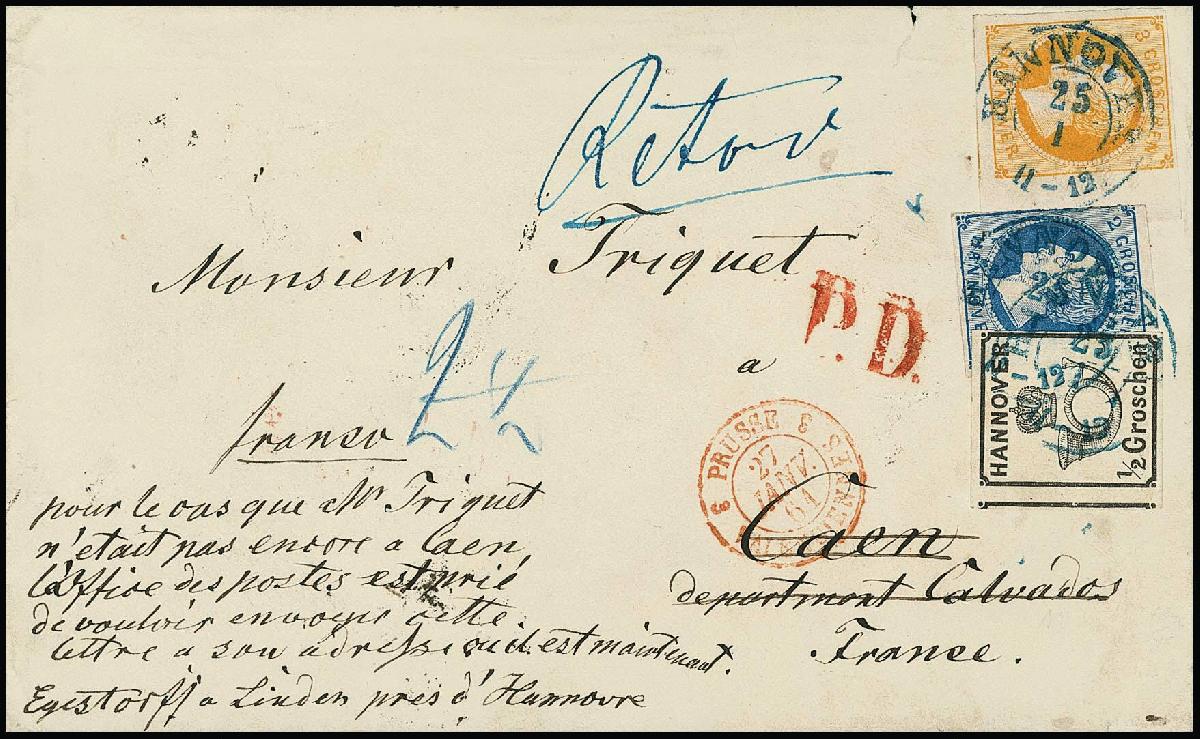 Retour
Monsieur Triquet
a
franco
2½
P.D.
Caen
departmont Calvados
France.
pour le cas que Mr Triquet
n'etait pas encore a Caen,
l'Office des postes est prié
de vouloir envoyer cette
lettre a son adresse ou il est maintenant.
Egestorff a Linden près d'Hannovre
PRUSSE 3
27
JANV.
61
HANNOVER
25
1
11-12
3 GROSCHEN
HANNOVER
2 GROSCHEN
HANNOVER
25
-12
HANNOVER
1/2 Groschen